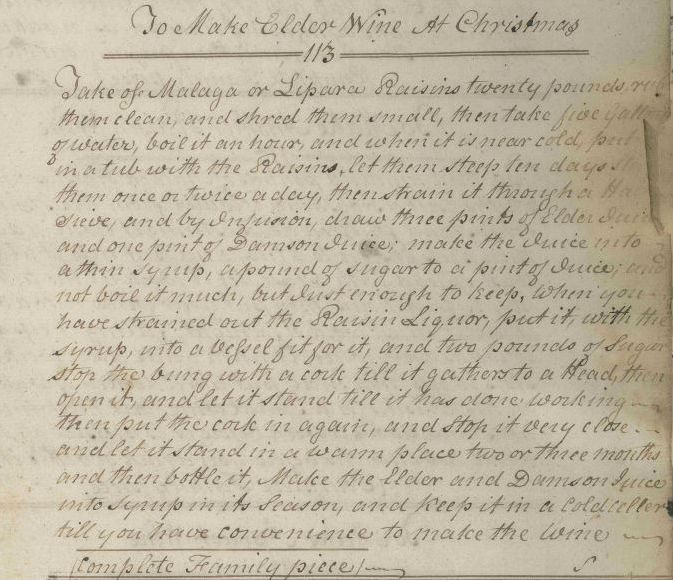 To Make Elder Wine At Christmas
113
Take of Malaga or Lipara Raisins twenty pounds, rub
them clean, and shred them small, then take five gallon
of water, boil it an hour, and when it is near cold, put
in a tub with the Raisins, let them steep ten days
them once or twice a day, then strain it through a
Sieve, and by Infusion, draw three pints of Elder Juice
and one pint of Damson Juice; make the Juice into
a thin syrup, a pound of sugar to a pint of Juice; and
not boil it much, but Just enough to keep, when you
have strained out the Raisin Liquor, put it, with the
syrup, into a veſsel fit for it, and two pounds of Sugar
stop the bung with a cork till it gathers to a Head, then
open it, and let it stand till it has done working
then put the cork in again, and stop it very close
and let it stand in a warm place two or three months
and then bottle it, Make the Elder and Damson Juice
into Syrup in its Season, and keep it in a Cold celler
till you have convenience to make the Wine
(complete Family piece)